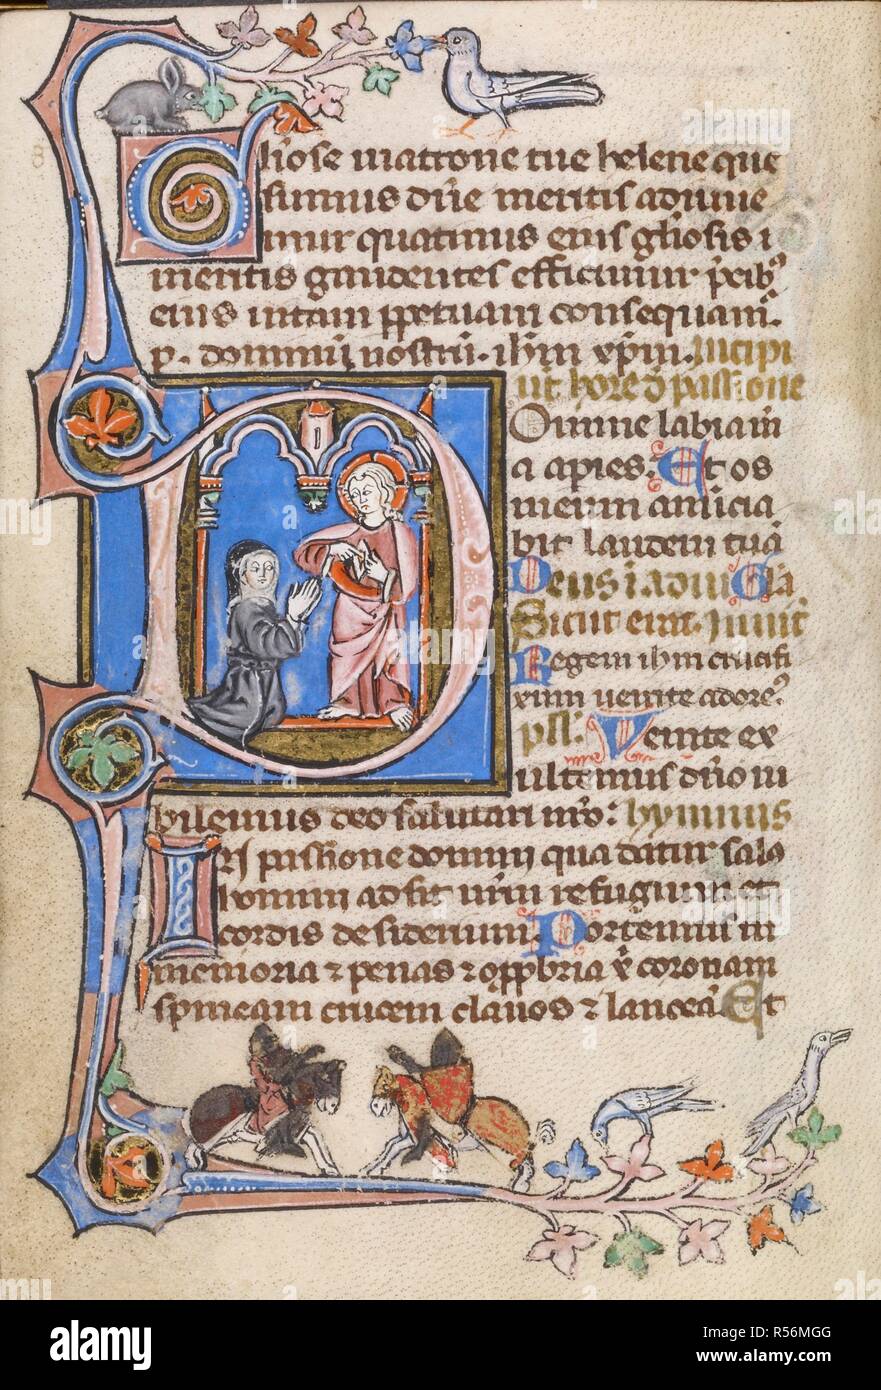 Gliose matrone tue helene que
sumus dñe meritis adiuue
mur quatinus eius gliosis i
meritis gaudentes efficimur
eius uitam ppetuam consequam
p. dominū nostrū. ihm xpm. Incipi
unt hore d passione
Domine labia m
a apies. Et os
meum anūcia
bit laudem tuā
Deus i adiu Gla
Sicut erat. Inuit
Regem ihm crucifi
xum uenite adore
ps. Venite ex
ultemus dño iu
bilemus deo salutari nro: hymnus
In passione domini qua datur salꝰ
homini ad sit nrm refugium et
cordis desiderium. Portemus in
memoria ⁊ penas ⁊ opp̄bria x̄ coronam
spineam crucem clauos ⁊ lanceā. Et
alamy
Image ID: R56MGG
www.alamy.com